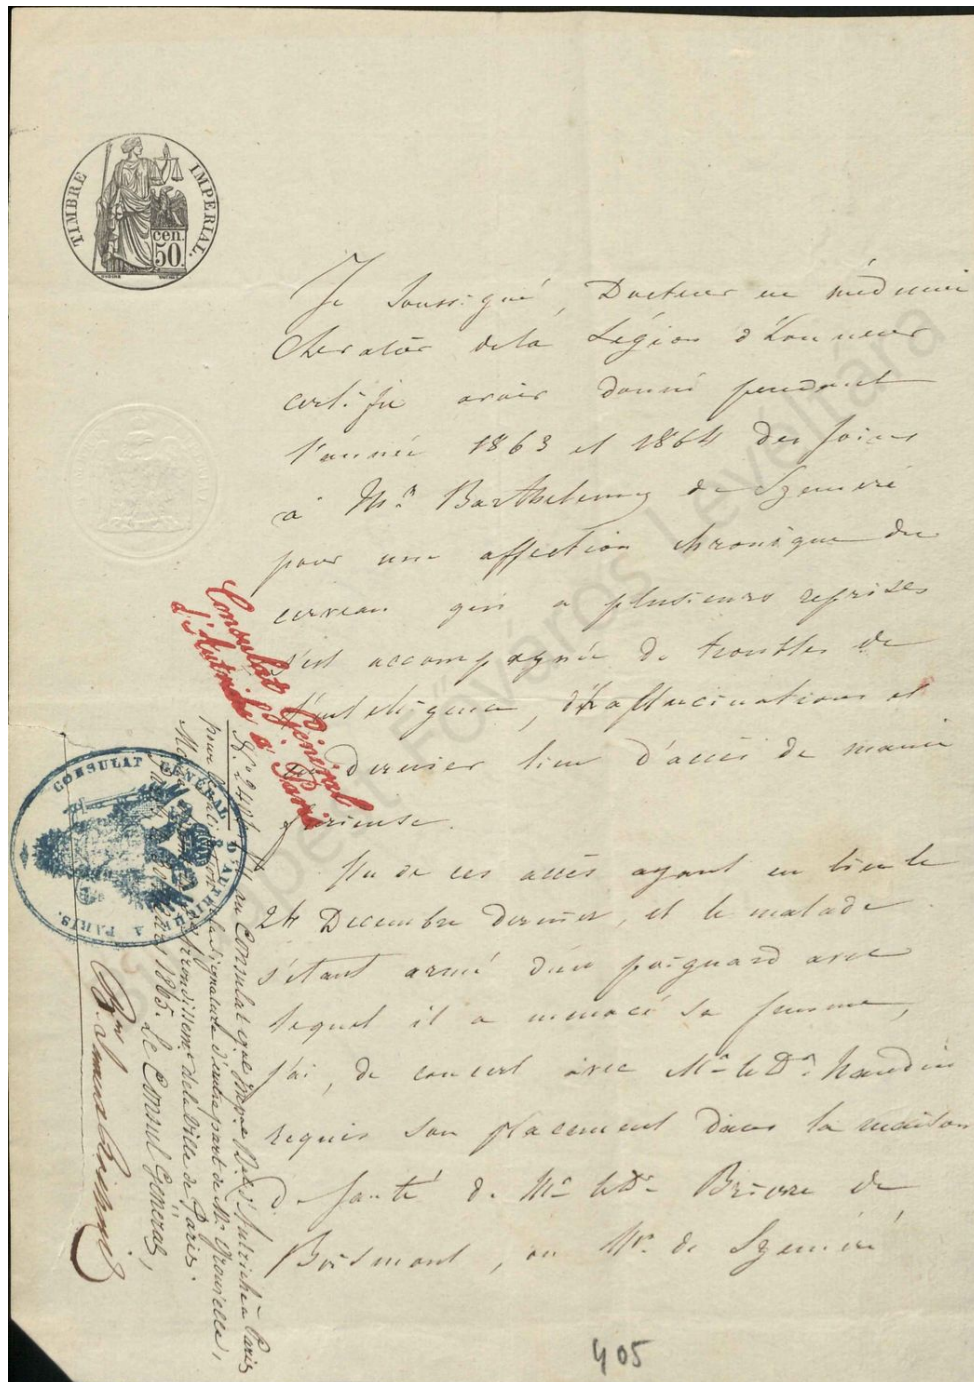 TIMBRE IMPERIAL.
50 cen.
Je Soussigné, Docteur en médecine
Chevalier de la Légion d'honneur
certifie avoir donné pendant
l'année 1863 et 1864 des soins
à Mr. Barthelemy de Szemeré
pour une affection chronique du
cerveau qui a plusieurs reprises
s'est accompagnée de troubles de
l'intelligence, d'hallucinations et
en dernier lieu d'accès de manie
furieuse.
Un de ces accès ayant eu lieu le
24 Decembre dernier, et le malade
s'étant armé d'un poignard avec
lequel il a menacé sa femme,
j'ai, de concert avec Mr. le Dr.
requis son placement dans la maison
de santé de Mr. le Dr. Brierre de
Boismont, ou Mr. de Szemeré
Consulat Général
d'Autriche à Paris
Vu au Consulat gral d'Autriche à Paris
pour la signature d'autre part de Mr.
arrondissemt de la Ville de Paris.
1865. Le Consul Général,
CONSULAT GÉNÉRAL D'AUTRICHE A PARIS.
405
Budapest Főváros Levéltára